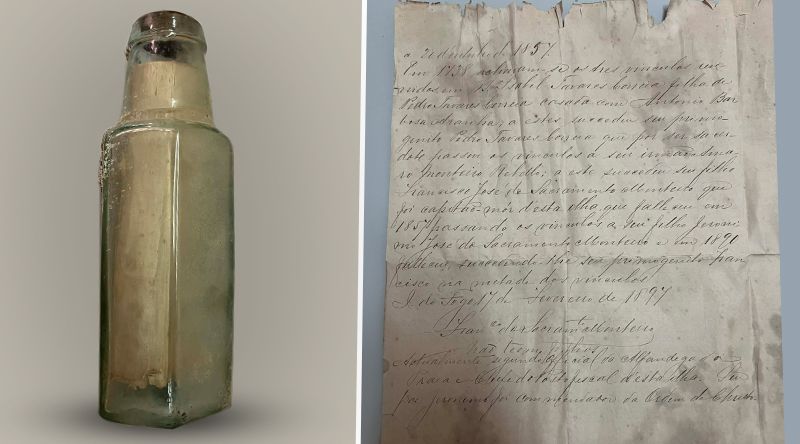 a 20 de                de 1857.
Em 1738 achavam-se os tres vinculos reu-
nidos em D. Isabel Tavares Correia filha de
Pedro Tavares Correia casada com Antonio Bar
bosa Aranha; a estes succedeu seu primo-
genito Pedro Tavares Correia que por ser sacer
dote passou os vinculos a seu irmão
ro Monteiro Rebello; a este succedeu seu filho
Francisco José do Sacramento Monteiro que
foi capitão-mór d'esta ilha que falleceu em
1857 passando os vinculos a seu filho Jeroni
mo José do Sacramento Monteiro e em 1891
falleceu, succedendo-lhe seu primogenito Fran
cisco na metade dos vinculos.
I. do Fogo, 17 de Fevereiro de 1897
Franco do Sacramto Monteiro
Actualmente segundo official da Alfandega da
Praia e Chefe do Posto fiscal d'esta ilha.
pae foi commendador da Ordem de Christo